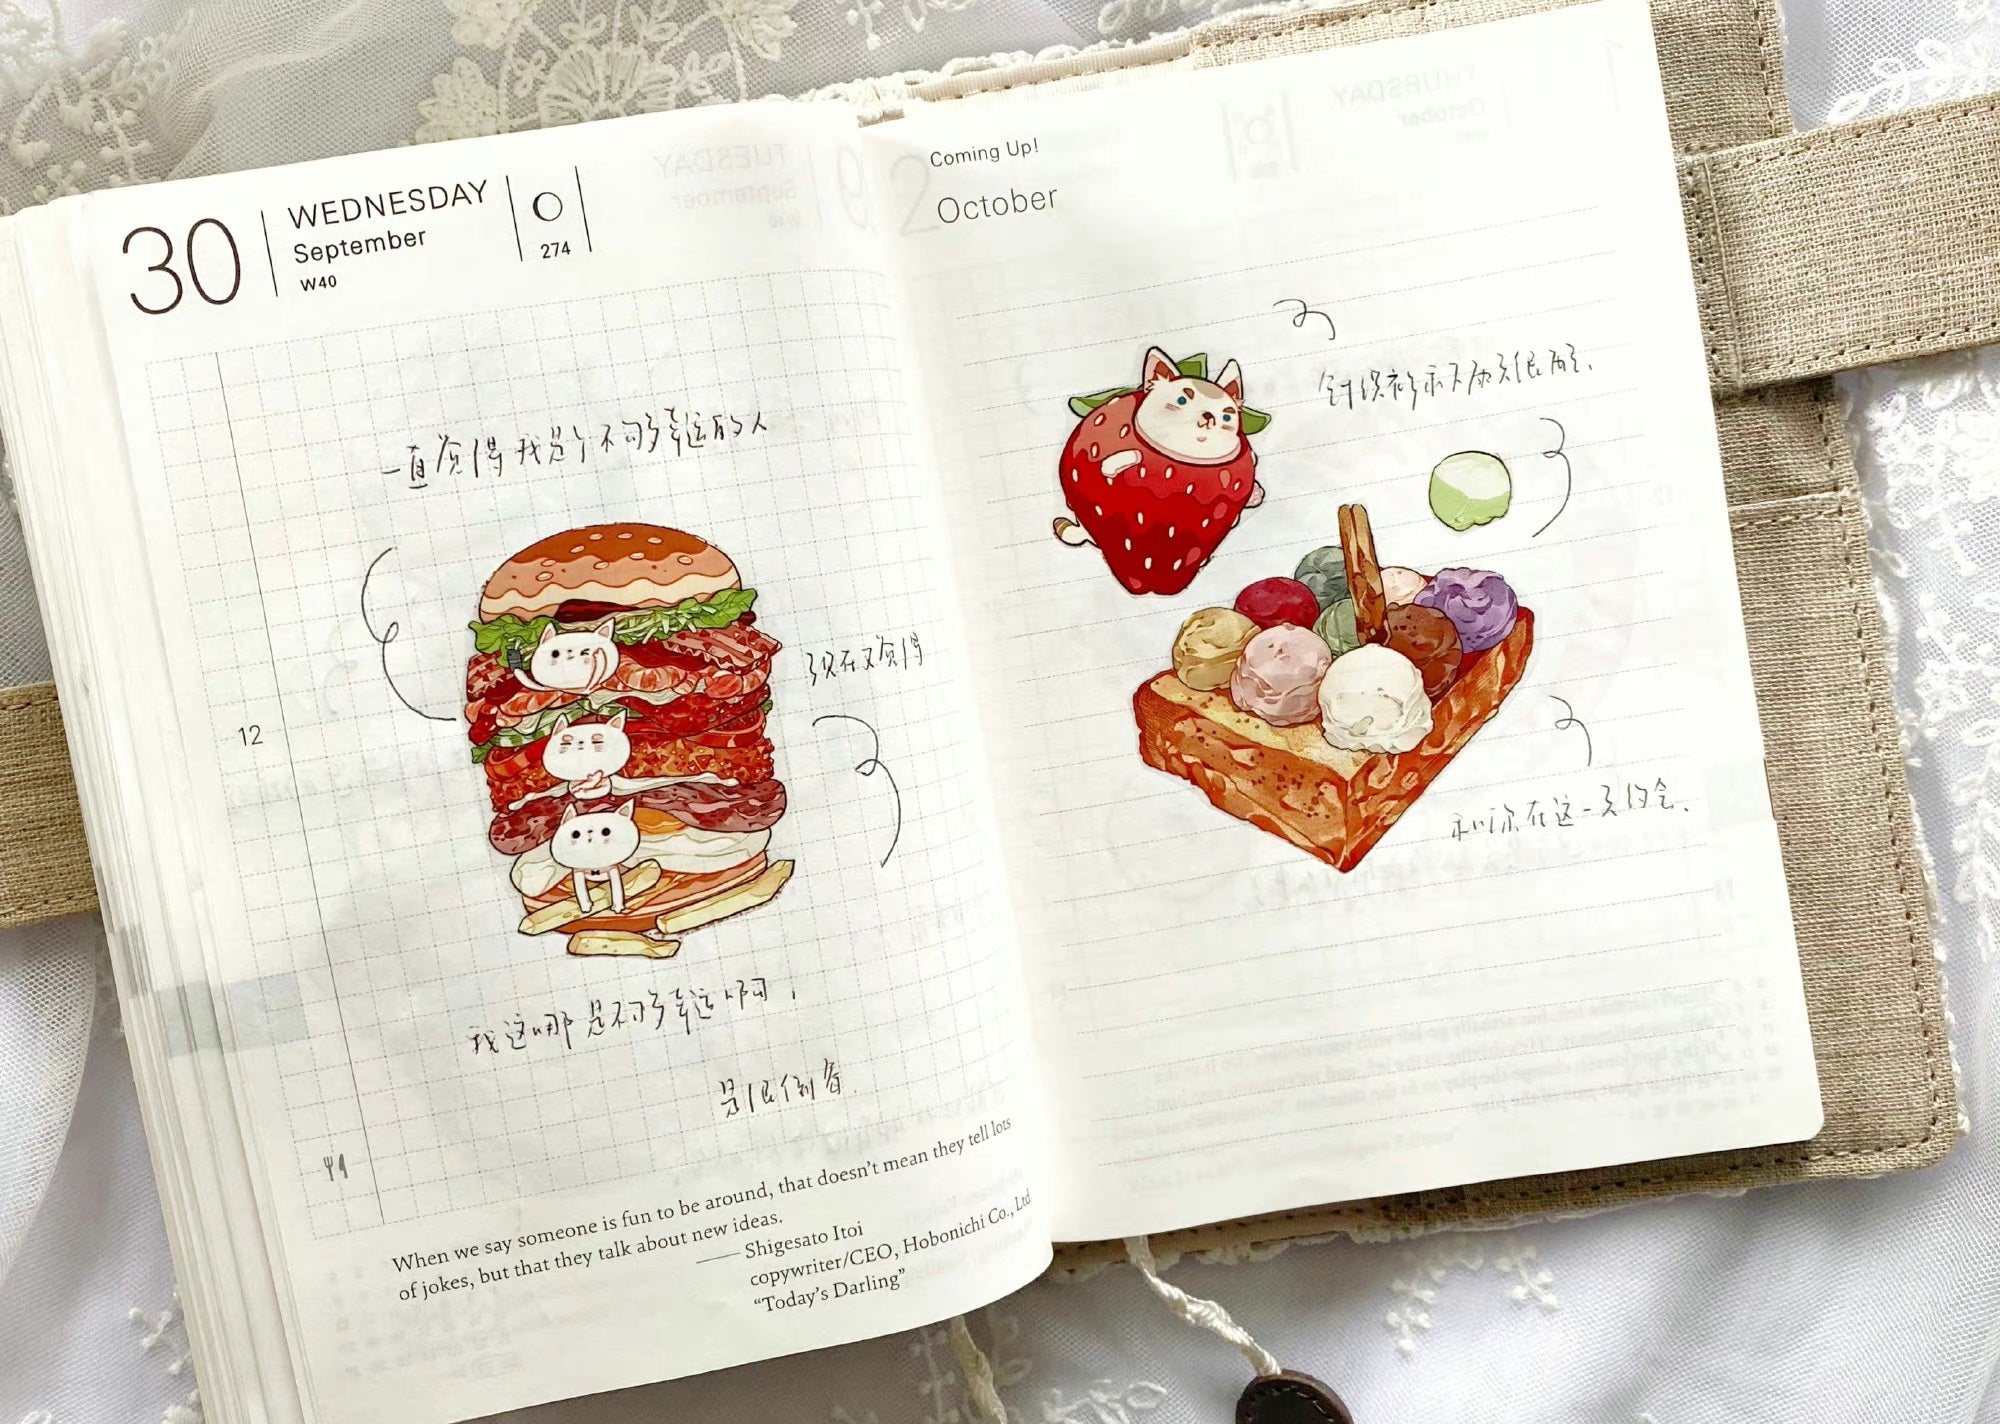 30
WEDNESDAY
September
W40
274
一直觉得我是个不够幸运的人
现在又觉得
12
我这哪是不够幸运啊，
是很倒霉.
When we say someone is fun to be around, that doesn't mean they tell lots
of jokes, but that they talk about new ideas.
—— Shigesato Itoi
copywriter/CEO, Hobonichi Co., Ltd
“Today's Darling”
Coming Up!
October
和你在这一天约会.